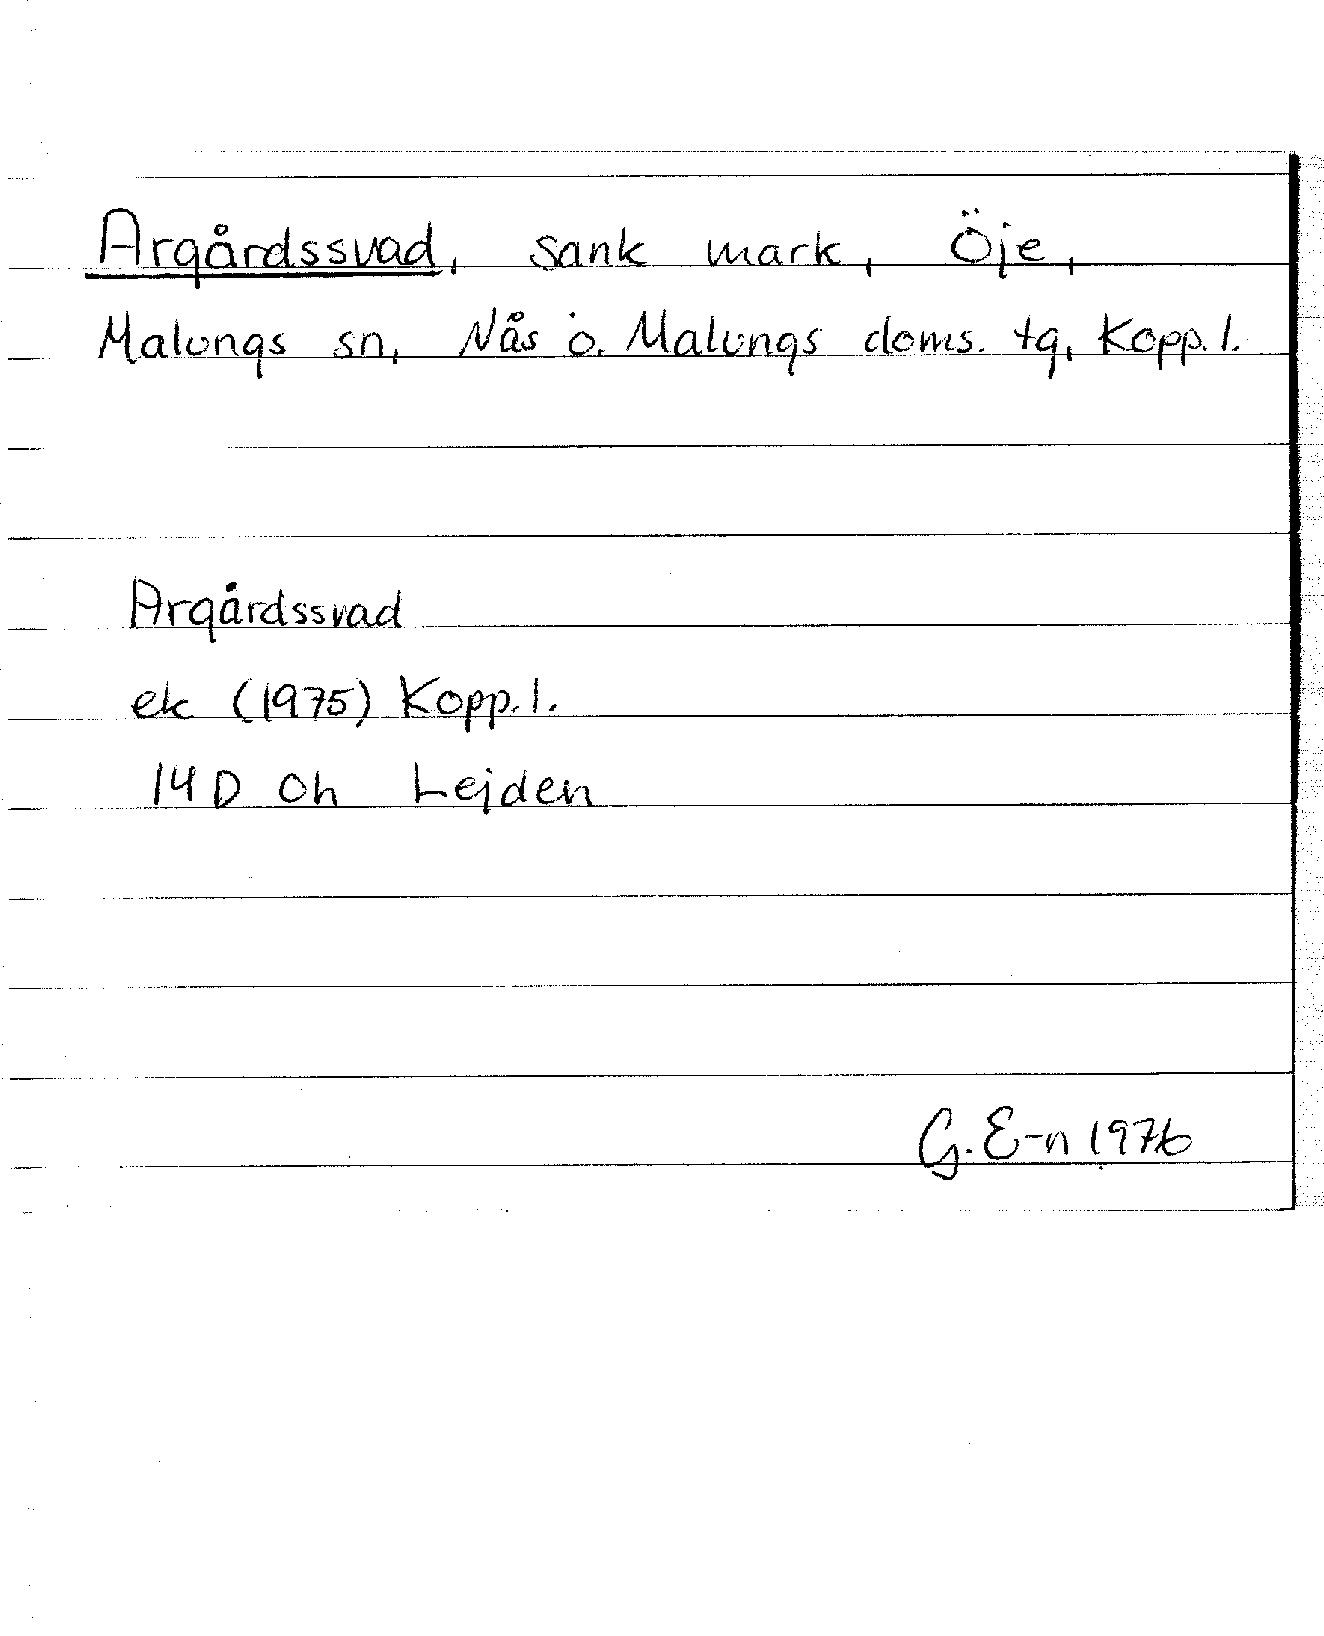 Argårdssvad, sank mark, Öje,
Malungs sn, Nås o. Malungs doms. tg, Kopp. l.
Argårdssvad
ek (1975) Kopp. l.
14 D 0h Lejden
G. E-n 1976